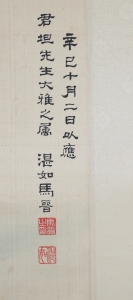 辛巳十月二日以應
君坦先生大雅之屬 湛如馬晉